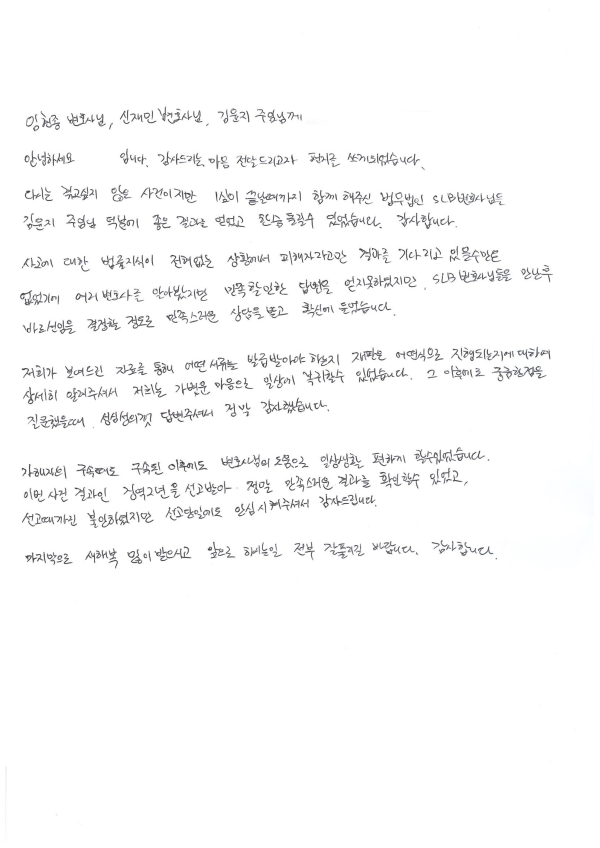 임현종 변호사님, 신재민 변호사님, 김윤지 주임님께
안녕하세요 입니다. 감사드리는 마음 전달드리고자 편지를 쓰게되었습니다.
다시는 겪고싶지 않은 사건이지만 1심이 끝날때까지 함께 해주신 법무법인 SLB변호사님들
김윤지 주임님 덕분에 좋은 결과를 얻었고 한숨 돌릴수 있었습니다. 감사합니다.
사고에 대한 법률지식이 전혀없는 상황에서 피해자라고만 결과를 기다리고 있을수만은
없었기에 여러 변호사를 알아봤지만 만족할만한 답변을 얻지못하였지만, SLB변호사님들을 만난후
바로선임을 결정할 정도로 만족스러운 상담을 받고 확신에 들었습니다.
저희가 보여드린 자료를 통해 어떤 서류를 발급받아야 하는지 재판은 어떤식으로 진행되는지에 대하여
상세히 알려주셔서 저희는 가벼운 마음으로 일상에 복귀할수 있었습니다. 그 이후에도 궁금한점을
질문했을때 성심성의껏 답변주셔서 정말 감사했습니다.
가해자의 구속때도 구속된 이후에도 변호사님의 도움으로 일상생활 편하게 할수있었습니다.
이번 사건 결과인 징역2년을 선고받아 정말 만족스러운 결과를 확인할수 있었고,
선고때까진 불안하였지만 선고당일에도 안심시켜주셔서 감사드립니다.
마지막으로 새해복 많이 받으시고 앞으로 하시는일 전부 잘풀리길 바랍니다. 감사합니다.